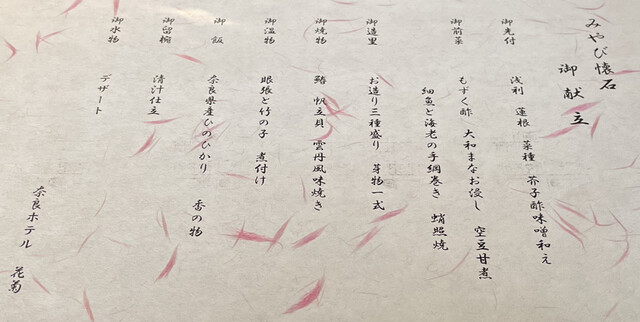 みやび懐石
御献立
御先付
浅利 蓮根 菜種 芥子酢味噌和え
御前菜
もずく酢 大和まなお浸し 空豆甘煮
細魚と海老の手綱巻き 蛸照焼
御造里
お造り三種盛り 芽物一式
御焼物
鰆 帆立貝 雲丹風味焼き
御温物
眼張と竹の子 煮付け
御飯
奈良県産ひのひかり 香の物
御留椀
清汁仕立
御水物
デザート
奈良ホテル 花菊